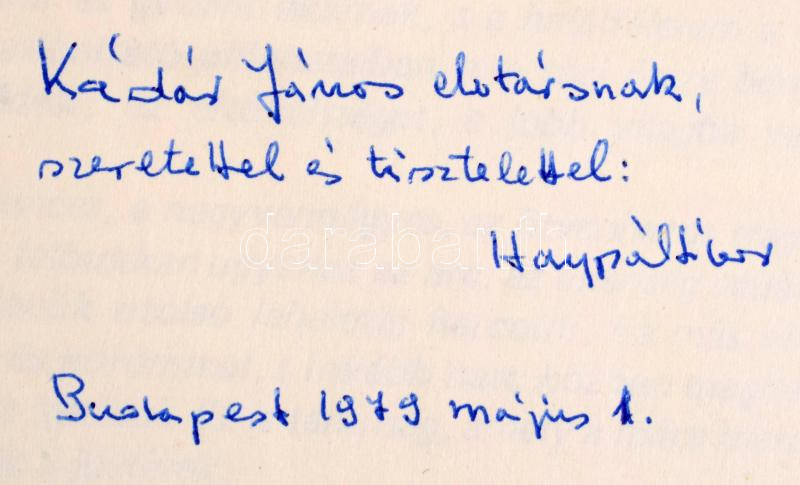 Kádár János elvtársnak,
szeretettel és tisztelettel:
darabanth
Hajpál Tibor
Budapest 1979 május 1.